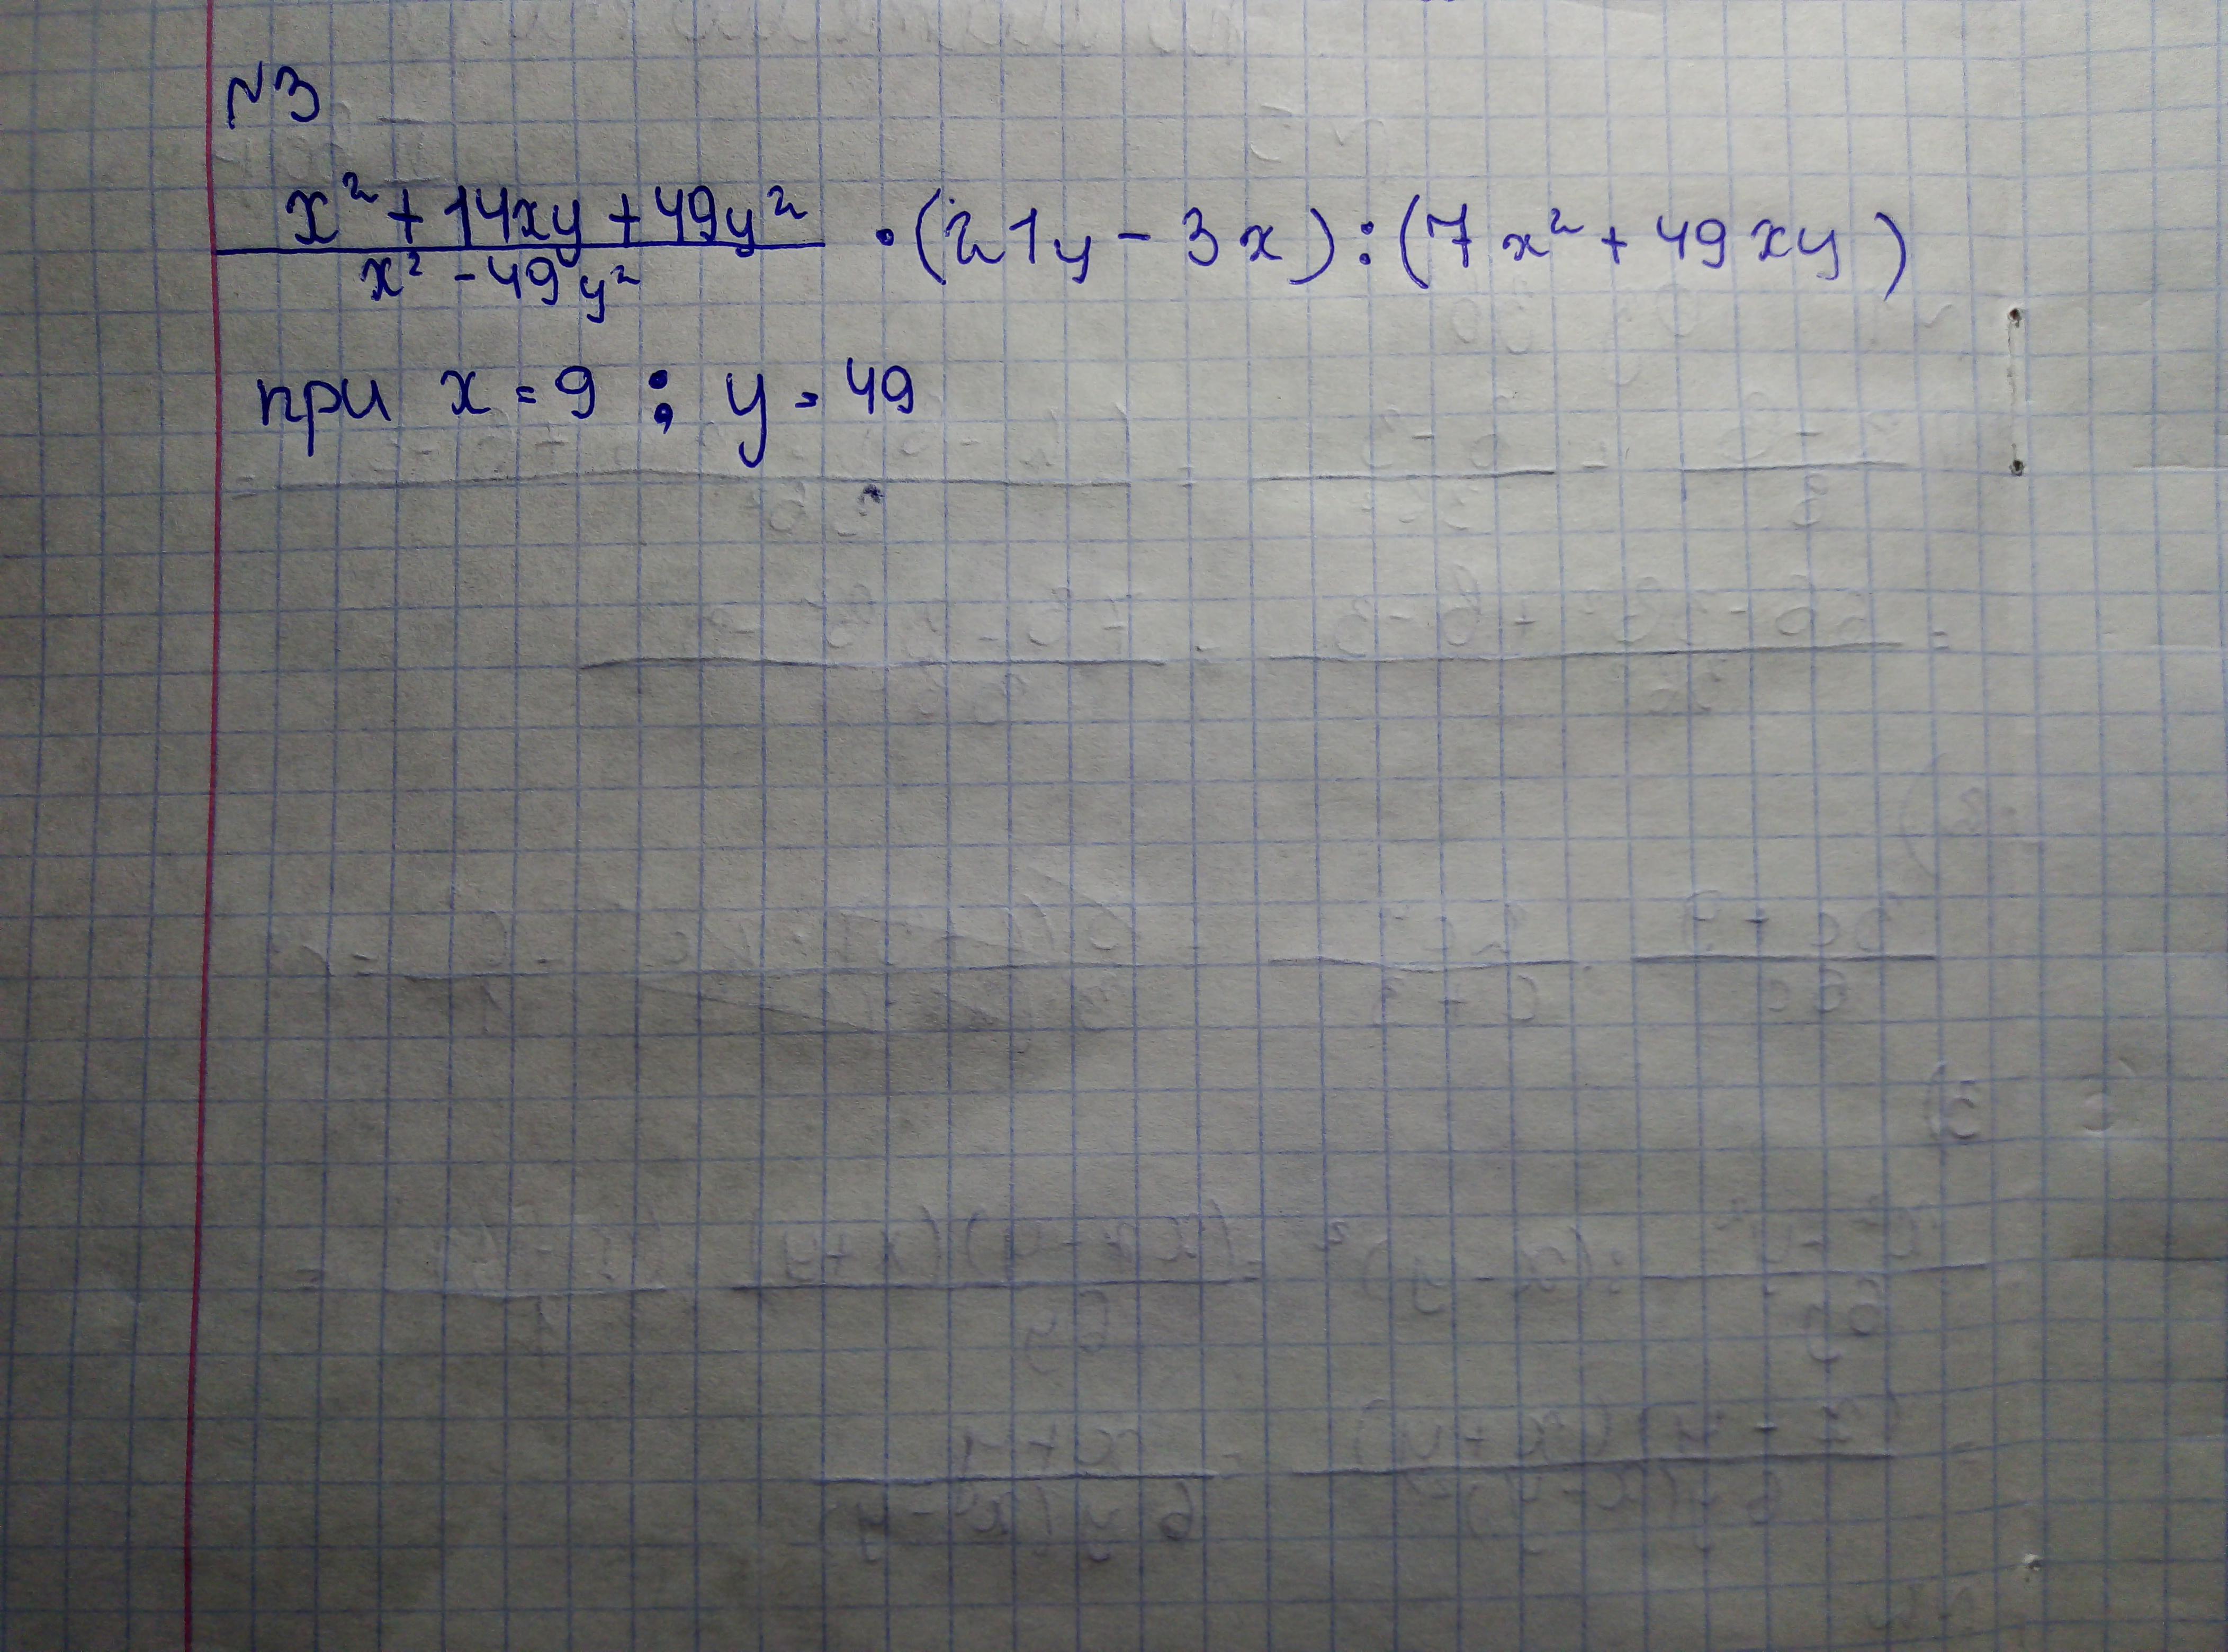 №3
x² + 14xy + 49y²
x² - 49y²
· (21y - 3x) : (7x² + 49xy)
при x = 9 ; y = 49